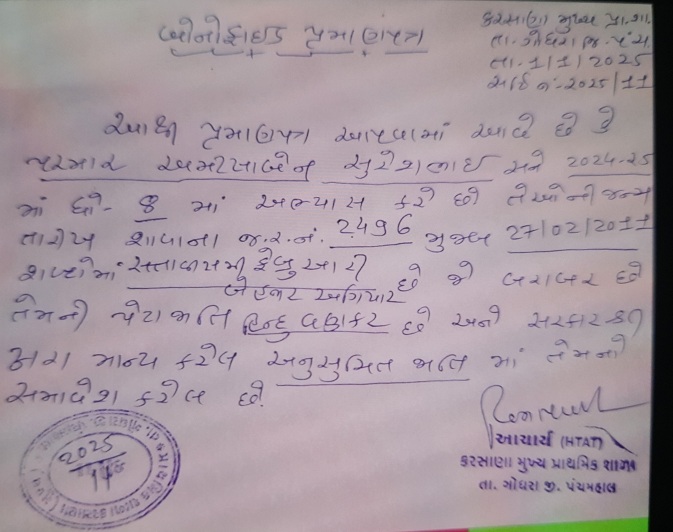 બોનોફાઇડ પ્રમાણપત્ર
કરસાણા મુખ્ય પ્રા.શા.
તા.ગોધરા જી. પંચ.
તા. 1/1/2025
સર્ટિ નં-2025/11
આથી પ્રમાણપત્ર આપવામાં આવે છે કે
પરમાર અમીષાબેન સુરેશભાઇ સને 2024-25
માં ધો- 8 માં અભ્યાસ કરે છે તેઓની જન્મ
તારીખ શાળાના જ.ર.નં. 2496 મુજબ 27/02/2011
શબ્દોમાં સત્તાવીસમી ફેબ્રુઆરી
બેહજાર અગિયાર છે જે બરાબર છે
તેમની પેટાજાતિ હિન્દુ વણકર છે અને સરકારશ્રી
દ્વારા માન્ય કરેલ અનુસુચિત જાતિ માં તેમનો
સમાવેશ કરેલ છે.
2025
11
આચાર્ય (HTAT)
કરસાણા મુખ્ય પ્રાથમિક શાળા
તા. ગોધરા જી. પંચમહાલ